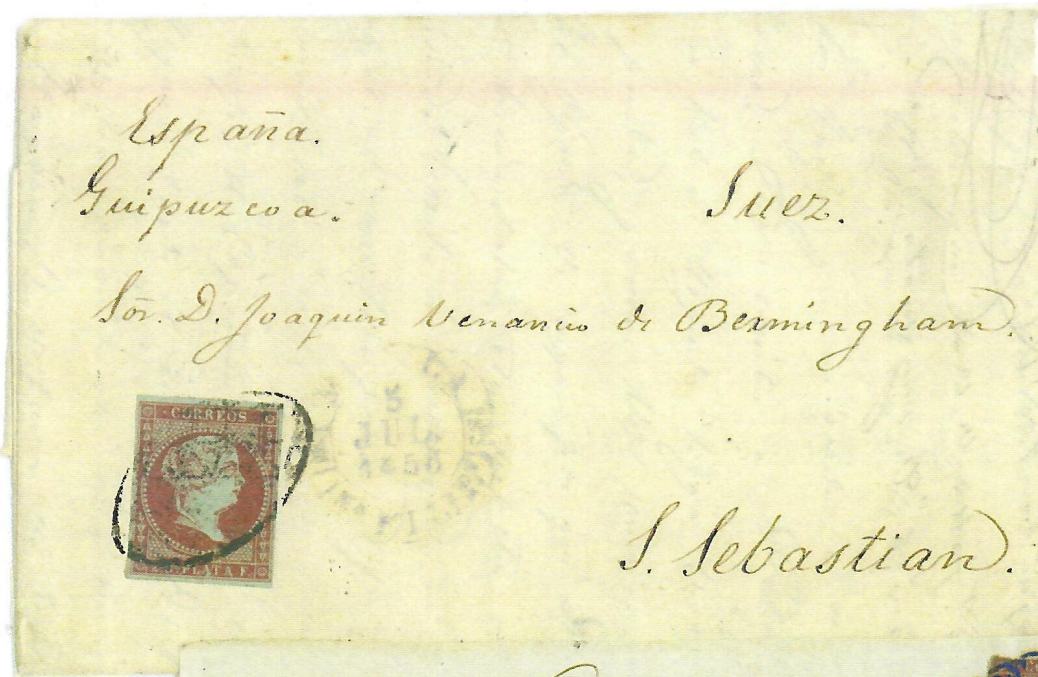 España.
Guipuzcoa.
Suez.
Sor. D. Joaquin Venancio de Bermingham.
CORREOS
PLATA F.
5
JUL
1856
S. Sebastian.